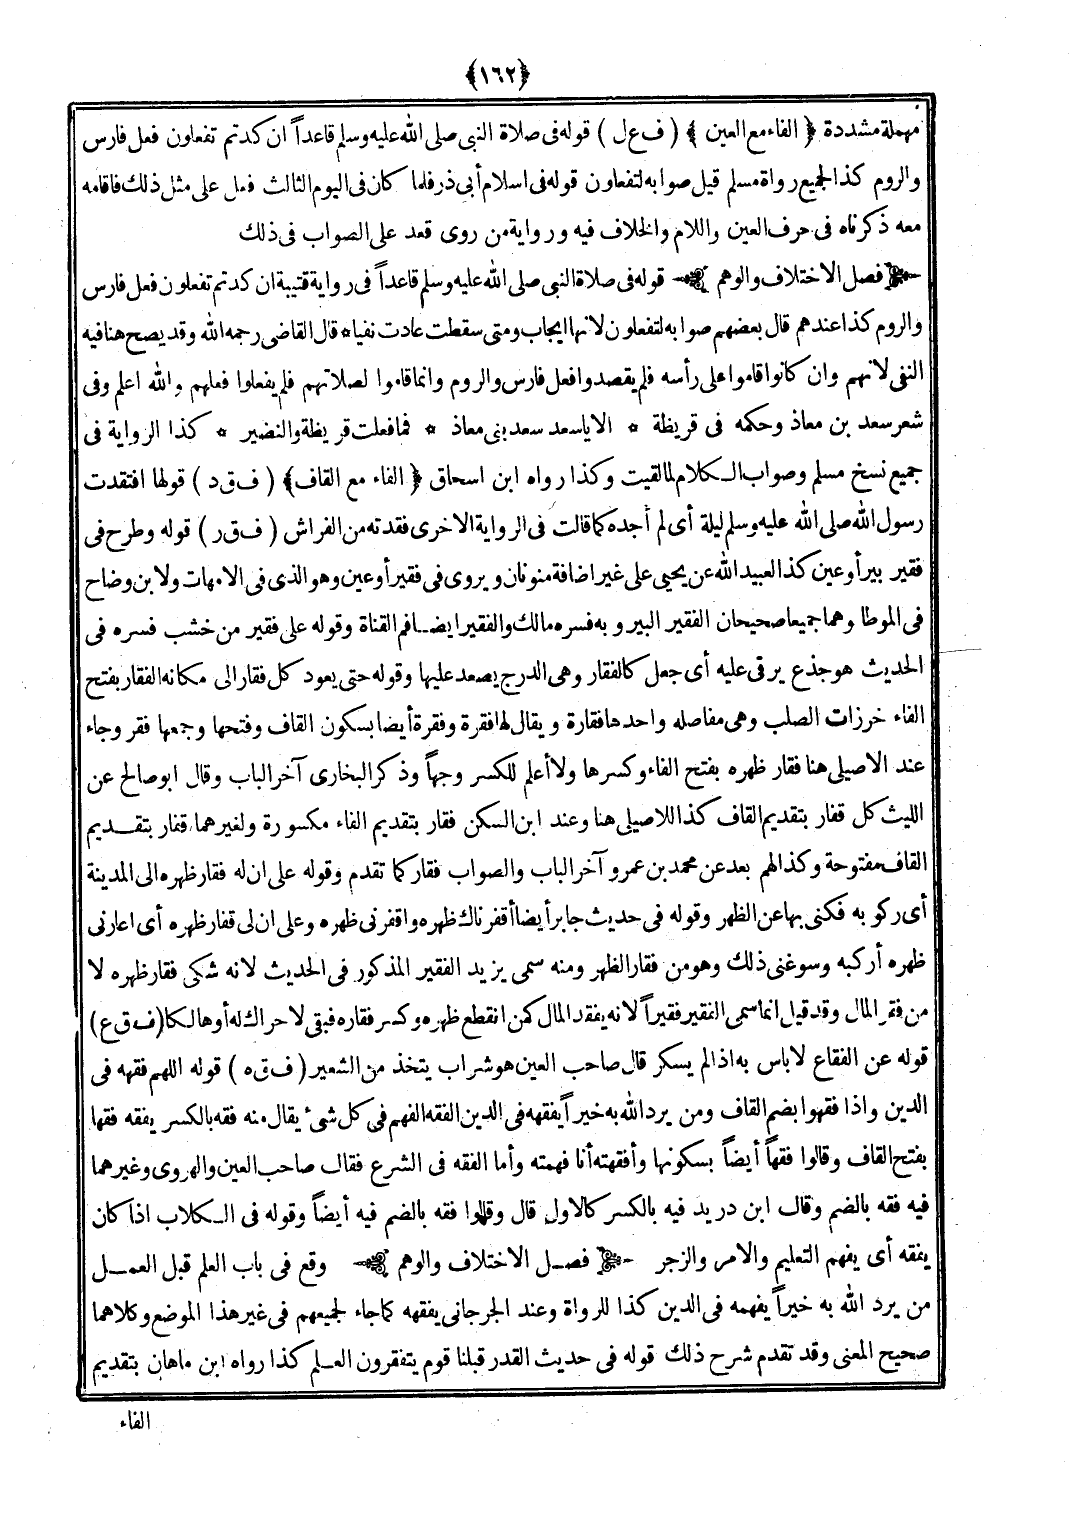 ﴿١٦٢﴾
مهملة مشددة ﴿ الفاء مع العين ﴾ ( ف ع ل ) قوله فى صلاة النبى صلى الله عليه وسلم قاعداً ان كدتم تفعلون فعل فارس
والروم كذا لجميع رواة مسلم قيل صوابه لتفعلون قوله فى اسلام أبى ذر فلما كان فى اليوم الثالث فعل على مثل ذلك فاقامه
معه ذكرناه فى حرف العين واللام والخلاف فيه ورواية من روى قعد على الصواب فى ذلك
فصل الاختلاف والوهم قوله فى صلاة النبى صلى الله عليه وسلم قاعداً فى رواية قتيبة ان كدتم تفعلون فعل فارس
والروم كذا عندهم قال بعضهم صوابه لتفعلون لانها ايجاب ومتى سقطت عادت نفيا * قال القاضى رحمه الله وقد يصح هنا فيه
النفى لانهم وان كانوا قاموا على رأسه فلم يقصدوا فعل فارس والروم وانما قاموا لصلاتهم فلم يفعلوا فعلهم والله اعلم وفى
شعر سعد بن معاذ وحكمه فى قريظة * الا يا سعد سعد بنى معاذ * فما فعلت قريظة والنضير * كذا الرواية فى
جميع نسخ مسلم وصواب الكلام لما لقيت وكذا رواه ابن اسحاق ﴿ الفاء مع القاف ﴾ ( ف ق د ) قولها افتقدت
رسول الله صلى الله عليه وسلم ليلة أى لم أجده كما قالت فى الرواية الاخرى فقدته من الفراش ( ف ق ر ) قوله وطرح فى
فقير بير أو عين كذا لعبيد الله عن يحيى على غير اضافة منونان ويروى فى فقير أو عين وهو الذى فى الامهات ولابن وضاح
فى الموطا وهما جميعا صحيحان الفقير البير وبه فسره مالك والفقير ايضا فم القناة وقوله على فقير من خشب فسره فى
الحديث هو جذع يرقى عليه أى جعل كالفقار وهى الدرج يصعد عليها وقوله حتى يعود كل فقار الى مكانه الفقار بفتح
الفاء خرزات الصلب وهى مفاصله واحدها فقارة ويقال لها فقرة وفقرة أيضا بسكون القاف وفتحها وجمعها فقر وجاء
عند الاصيلى هنا فقار ظهره بفتح الفاء وكسرها ولا أعلم للكسر وجهاً وذكر البخارى آخر الباب وقال ابو صالح عن
الليث كل قفار بتقديم القاف كذا للاصيلى هنا وعند ابن السكن فقار بتقديم الفاء مكسورة ولغيرهما قفار بتقديم
القاف مفتوحة وكذا لهم بعد عن محمد بن عمرو آخر الباب والصواب فقار كما تقدم وقوله على ان له فقار ظهره الى المدينة
أى ركوبه فكنى بها عن الظهر وقوله فى حديث جابر أيضا أفقرناك ظهره وافقرنى ظهره وعلى ان لى فقار ظهره أى اعارنى
ظهره أركبه وسوغنى ذلك وهو من فقار الظهر ومنه سمى يزيد الفقير المذكور فى الحديث لانه شكى فقار ظهره لا
من فقر المال وقد قيل انما سمى الفقير فقيراً لانه يفقد المال كمن انقطع ظهره وكسر فقاره فبقى لا حراك له أو هالكا ( ف ق ع )
قوله عن الفقاع لا باس به اذا لم يسكر قال صاحب العين هو شراب يتخذ من الشعير ( ف ق ه ) قوله اللهم فقهه فى
الدين واذا فقهوا بضم القاف ومن يرد الله به خيراً يفقهه فى الدين الفقه الفهم فى كل شىء يقال منه فقه بالكسر يفقه فقها
بفتح القاف وقالوا فقهاً أيضاً بسكونها وأفقهته أنا فهمته وأما الفقه فى الشرع فقال صاحب العين والهروى وغيرهما
فيه فقه بالضم وقال ابن دريد فيه بالكسر كالاول قال وقالوا فقه بالضم فيه أيضاً وقوله فى الكلاب اذا كان
يفقه أى يفهم التعليم والامر والزجر فصل الاختلاف والوهم وقع فى باب العلم قبل العمل
من يرد الله به خيراً يفهمه فى الدين كذا للرواة وعند الجرجانى يفقهه كما جاء لجميعهم فى غير هذا الموضع وكلاهما
صحيح المعنى وقد تقدم شرح ذلك قوله فى حديث القدر قبلنا قوم يتفقرون العلم كذا رواه ابن ماهان بتقديم
الفاء